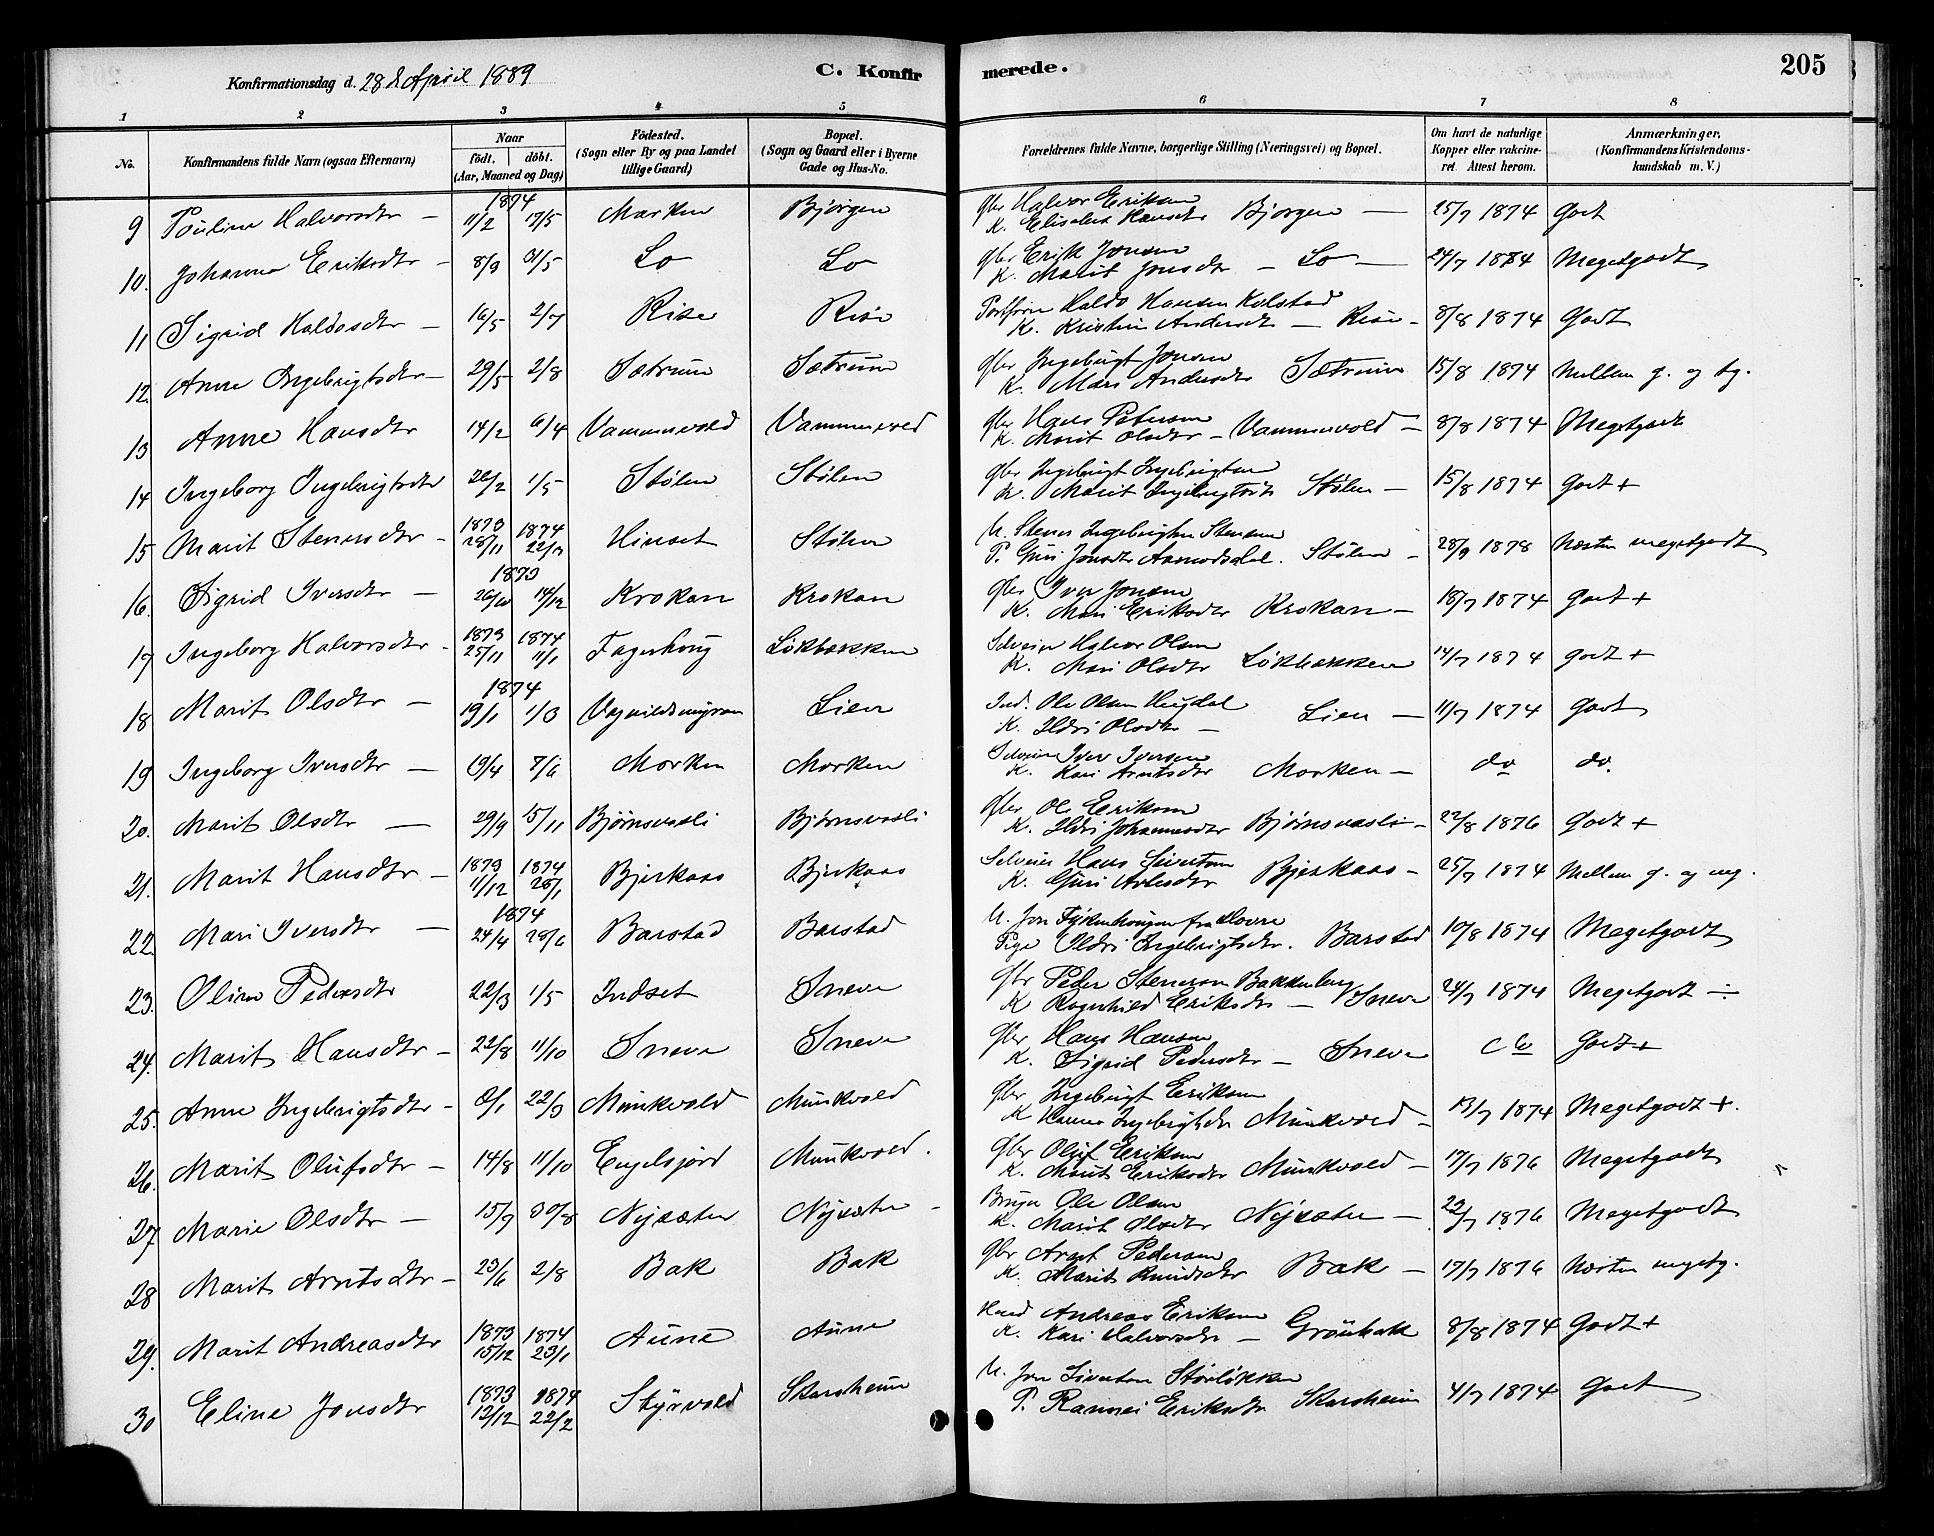 Konfirmationsdag d. 28de April 1889
C. Konfirmerede.
205
1 2 3 4 5 6 7 8
No.
Konfirmandens fulde Navn (ogsaa Efternavn)
Naar
födt. döbt.
(Aar, Maaned og Dag)
Födested.
(Sogn eller By og paa Landet
tillige Gaard)
Bopæl.
(Sogn og Gaard eller i Byerne
Gade og Hus-No.
Forældrenes fulde Navne, borgerlige Stilling (Næringsvei) og Bopæl.
Om havt de naturlige
Kopper eller vakcine-
ret. Attest herom.
Anmærkninger.
(Konfirmandens Kristendoms-
kundskab m. V.)
1874
9 Pauline Halvorsdtr — 11/2 17/5 Marken Bjørgen Gbr Halvor Eriksen
K. Elisabet Hansdtr Bjørgen — 25/7 1874 Godt
10. Johanna Eriksdtr — 8/3 31/5 Lo Lo Gbr Erik Jonsen
K. Marit Jonsdtr — Lo — 24/7 1874 Megetgodt
11 Sigrid Haldosdtr — 16/5 2/7 Rise Rise Haldo Hansen Kolstad
K. Kristin Andersdtr — Rise — 8/8 1874 Godt
12. Anne Ingebrigtsdtr — 29/5 2/8 Sætrum Sætrum Gbr Ingebrigt Jonsen
K. Mari Andersdtr Sætrum 15/8 1874 Mellem g. og tg.
13 Anne Hansdtr 14/2 6/4 Vammervold Vammervold Gbr Hans Petersen
K. Marit Olsdtr — Vammervold — 8/8 1874 Megetgodt
14 Ingeborg Ingebrigtsdtr 22/2 1/5 Stølen Stølen Gbr Ingebrigt Ingebrigtsen
K. Marit Ingebrigtsdtr Stølen — 15/8 1874 Godt +
1873 1874
15 Marit Stenersdtr — 28/11 22/3 Hinset Stølen U. Stener Ingebrigtsen Stenersen
P. Guri Jonsdtr Aamodsdal. Stølen — 28/9 1878 Næsten megetgodt
1873
16. Sigrid Iversdtr — 26/10 14/12 Krokan Krokan Gbr Iver Jonsen
K. Mari Eriksdtr Krokan — 18/7 1874 Godt +
1873 1874
17 Ingeborg Halvorsdtr — 25/11 11/1 Fagerhoug Løkbakken Selveier Halvor Olsen
K. Mari Olsdtr Løkbakken 14/7 1874 Godt +
1874
18 Marit Olsdtr — 19/1 1/3 Vognildsmyren Lien Ind. Ole Olsen Hugdal
K. Ildri Olsdtr — Lien — 11/7 1874 Godt
19 Ingeborg Iversdtr — 19/4 7/6 Morken Morken Selveier Iver Iversen
K. Kari Arntsdtr Morken — do do.
20. Marit Olsdtr — 29/9 15/11 Bjørnsvasli Bjørnsvasli Gbr Ole Eriksen
K. Ildri Johannesdtr Bjørnsvasli — 22/8 1876 Godt +
1873 1874
21. Marit Hansdtr — 11/12 25/1 Bjerkaas Bjerkaas Selveier Hans Sivertsen
K. Guri Arnesdtr Bjerkaas — 25/7 1874 Mellem g. og mg.
1874
22. Mari Iversdtr — 24/4 28/6 Barstad Barstad U. Jon Tykenhougen fra Dovre
Pige Ildri Ingebrigtsdtr. Barstad 10/8 1874 Megetgodt
23. Oline Pedersdtr 22/3 1/5 Indset Sneve Gbr Peder Stenersen Bakkenberg
K Ragnhild Eriksdtr — Sneve 24/7 1874 Megetgodt ÷
24. Marit Hansdtr — 22/8 11/10 Sneve Sneve Gbr Hans Hansen
K. Sigrid Pedersdtr — Sneve do Godt +
25. Anne Ingebrigtsdtr — 8/1 22/3 Munkvold Munkvold Gbr Ingebrigt Eriksen
K Hanna Ingebrigtsdtr Munkvold — 13/7 1874 Megetgodt +.
26. Marit Olufsdtr — 14/8 11/10 Engelsjord Munkvold. Gbr Oluf Eriksen
K. Marit Eriksdtr Munkvold — 17/7 1876 Megetgodt
27 Marie Olsdtr — 15/7 30/8 Nysæter Nysæter — Ole Olsen
K. Marit Olsdtr Nysæter — 22/7 1876 Megetgodt
28 Marit Arntsdtr — 23/6 2/8 Bak Bak Gbr Arnt Pedersen
K. Marit Knudsdtr Bak — 17/7 1876 Næsten megetg.
1873 1874
29. Marit Andreasdtr 15/12 23/1 Aune Aune Andreas Eriksen
K. Kari Halvorsdtr — Grønbak 8/8 1874 Godt +
1873 1874
30 Eline Jonsdtr 12/12 22/2 Styrvold Skarsheim U. Jon Sivertsen Størløkken
P. Rannei Eriksdtr Skarsheim 4/7 1874 Godt